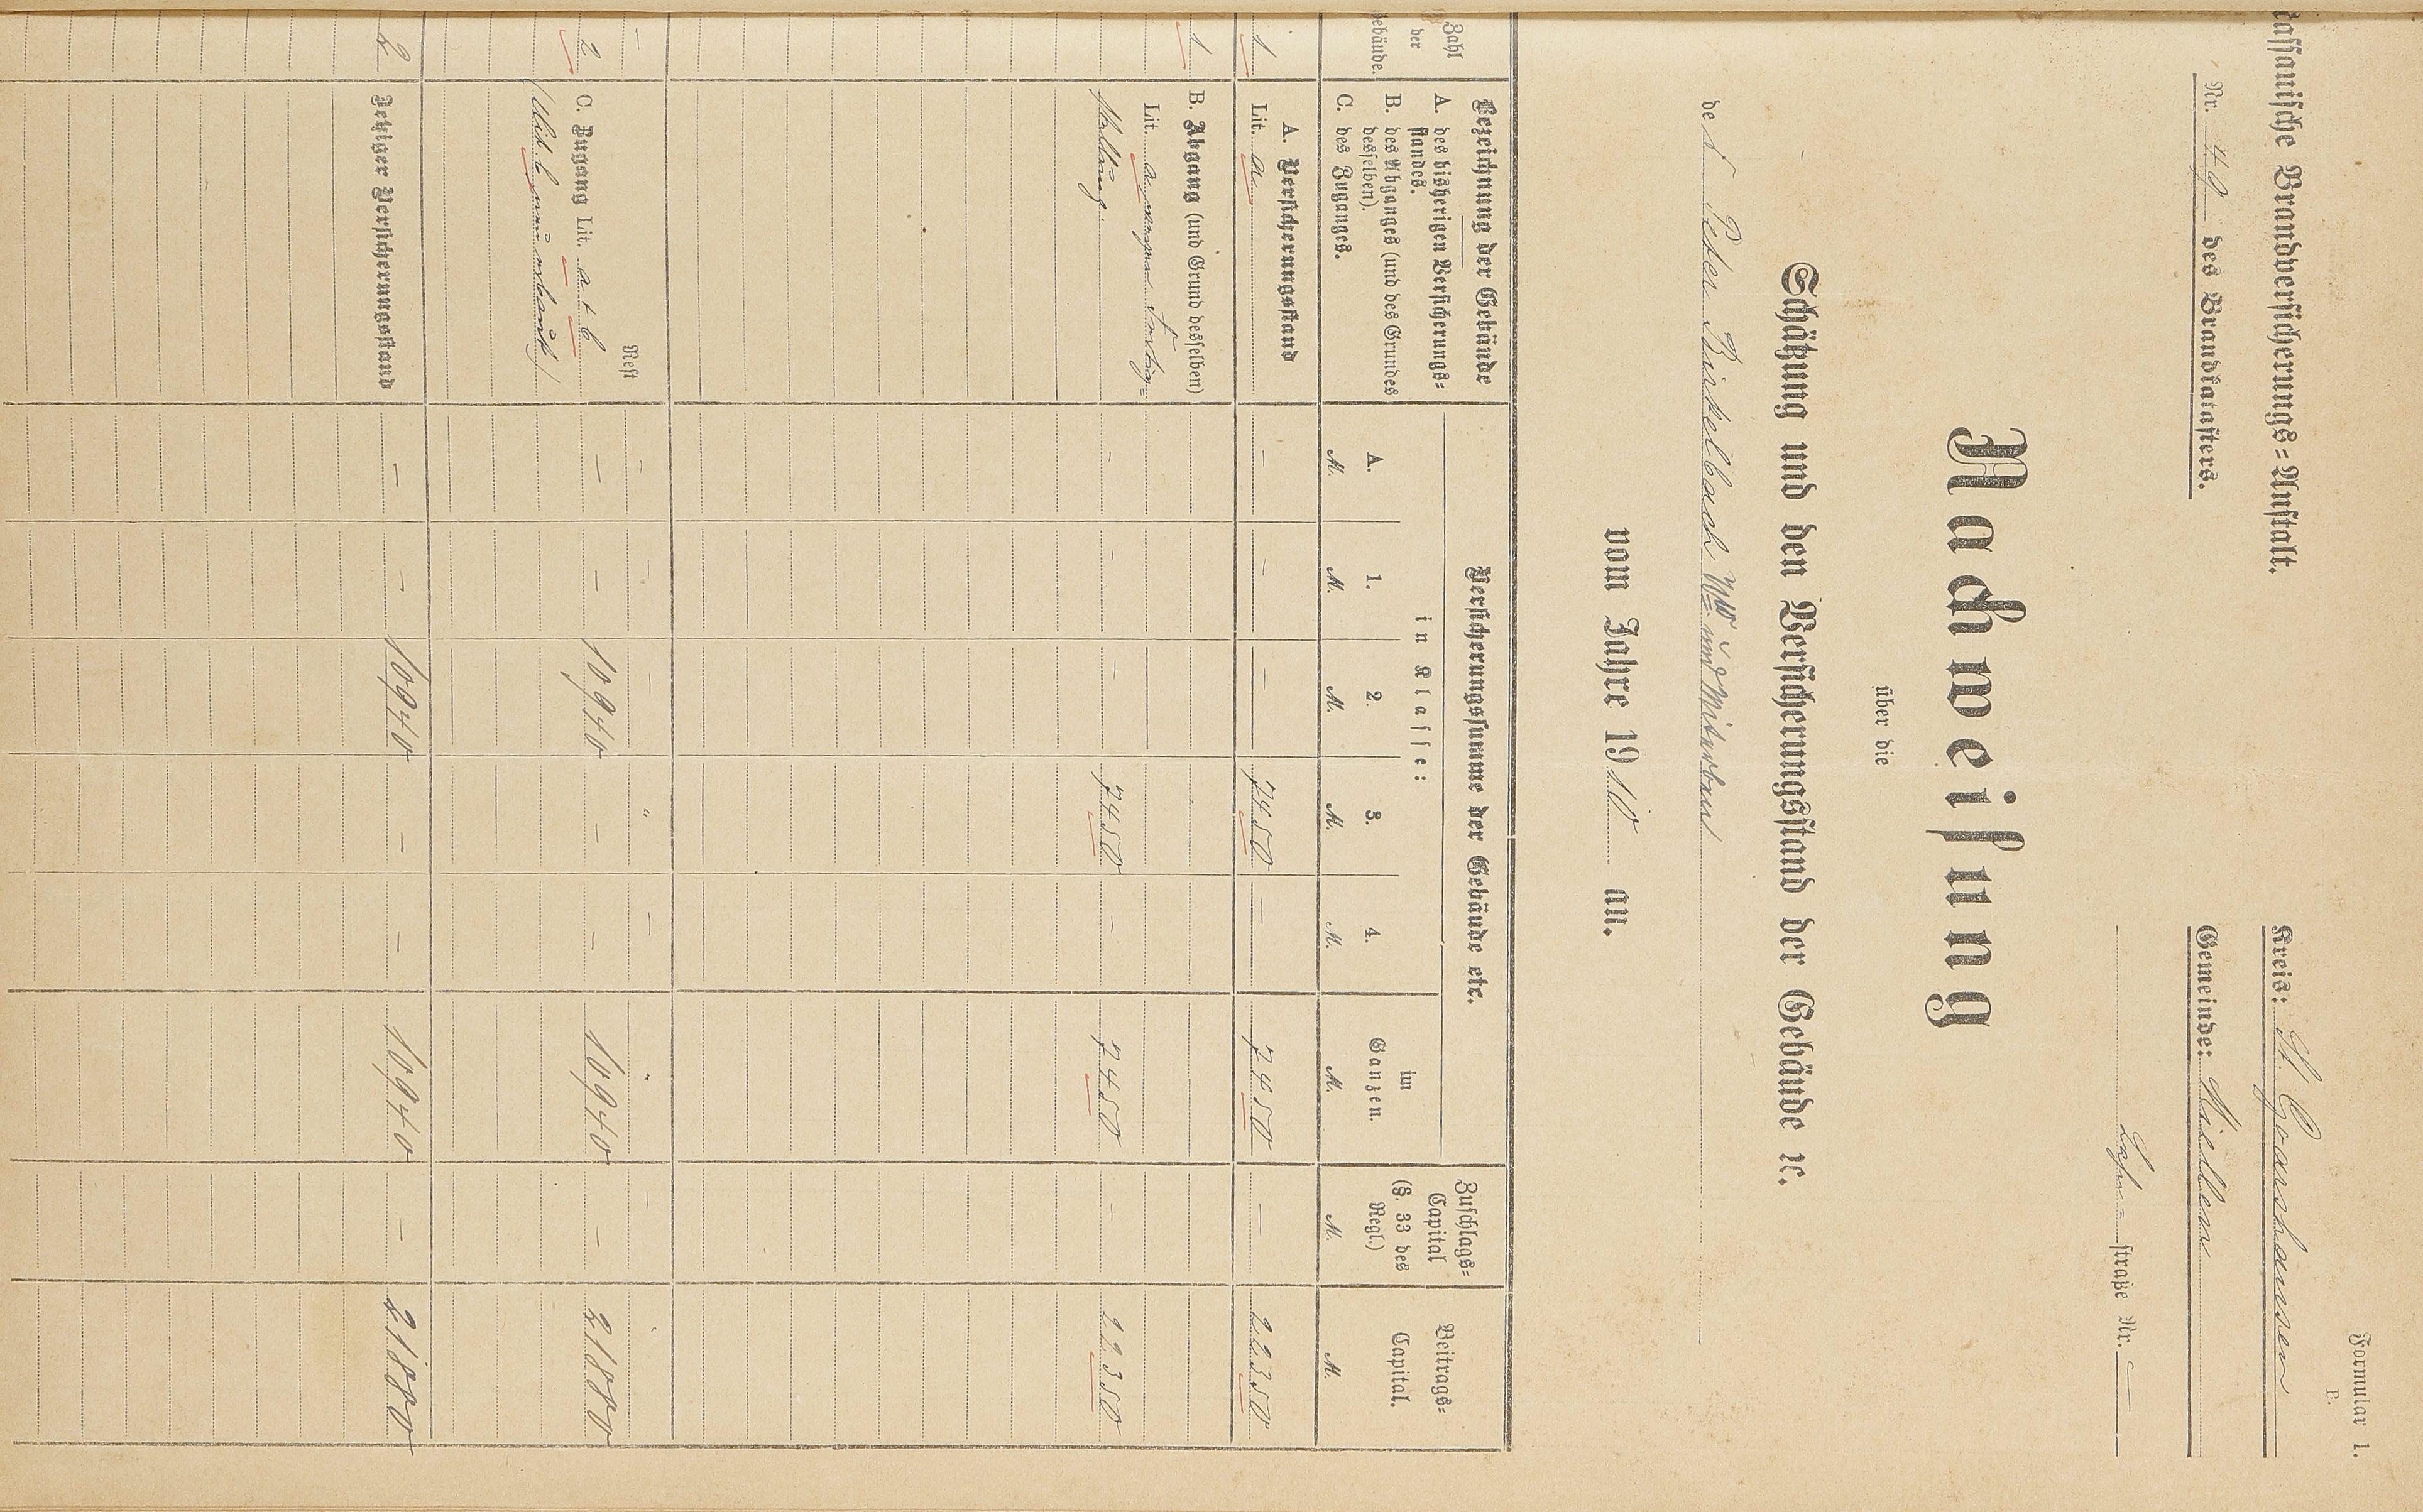 Formular 1.
P.
assauische Brandversicherungs=Anstalt.
Kreis: St. Goarshausen
Nr. 49 des Brandkatasters.
Gemeinde: Miellen
Lahn=straße Nr. —
Nachweisung
über die
Schätzung und den Versicherungsstand der Gebäude ꝛc.
des Peter Birkelbach Ww und Miterben
vom Jahre 1910 an.
Zahl der Gebäude.
Bezeichnung der Gebäude
A. des bisherigen Versicherungs=
standes.
B. des Abganges (und des Grundes
desselben).
C. des Zuganges.
Versicherungssumme der Gebäude etc.
in Klasse:
A. 1. 2. 3. 4.
im Ganzen.
Zuschlags=
Capital
(§. 33 des
Regl.)
Beitrags=
Capital.
M. M. M. M. M. M. M. M.
A. Versicherungsstand
1 Lit. a. — — — 7450 — 7450 — 22350
1 B. Abgang (und Grund desselben)
Lit. a wegen
— — — 7450 — 7450 — 22350
— Rest — — — " — " —
2 C. Zugang Lit. a + b — — 10940 — — 10940 — 21880
(Lit. b neu erbaut)
2 Jetziger Versicherungsstand — — 10940 — — 10940 — 21880